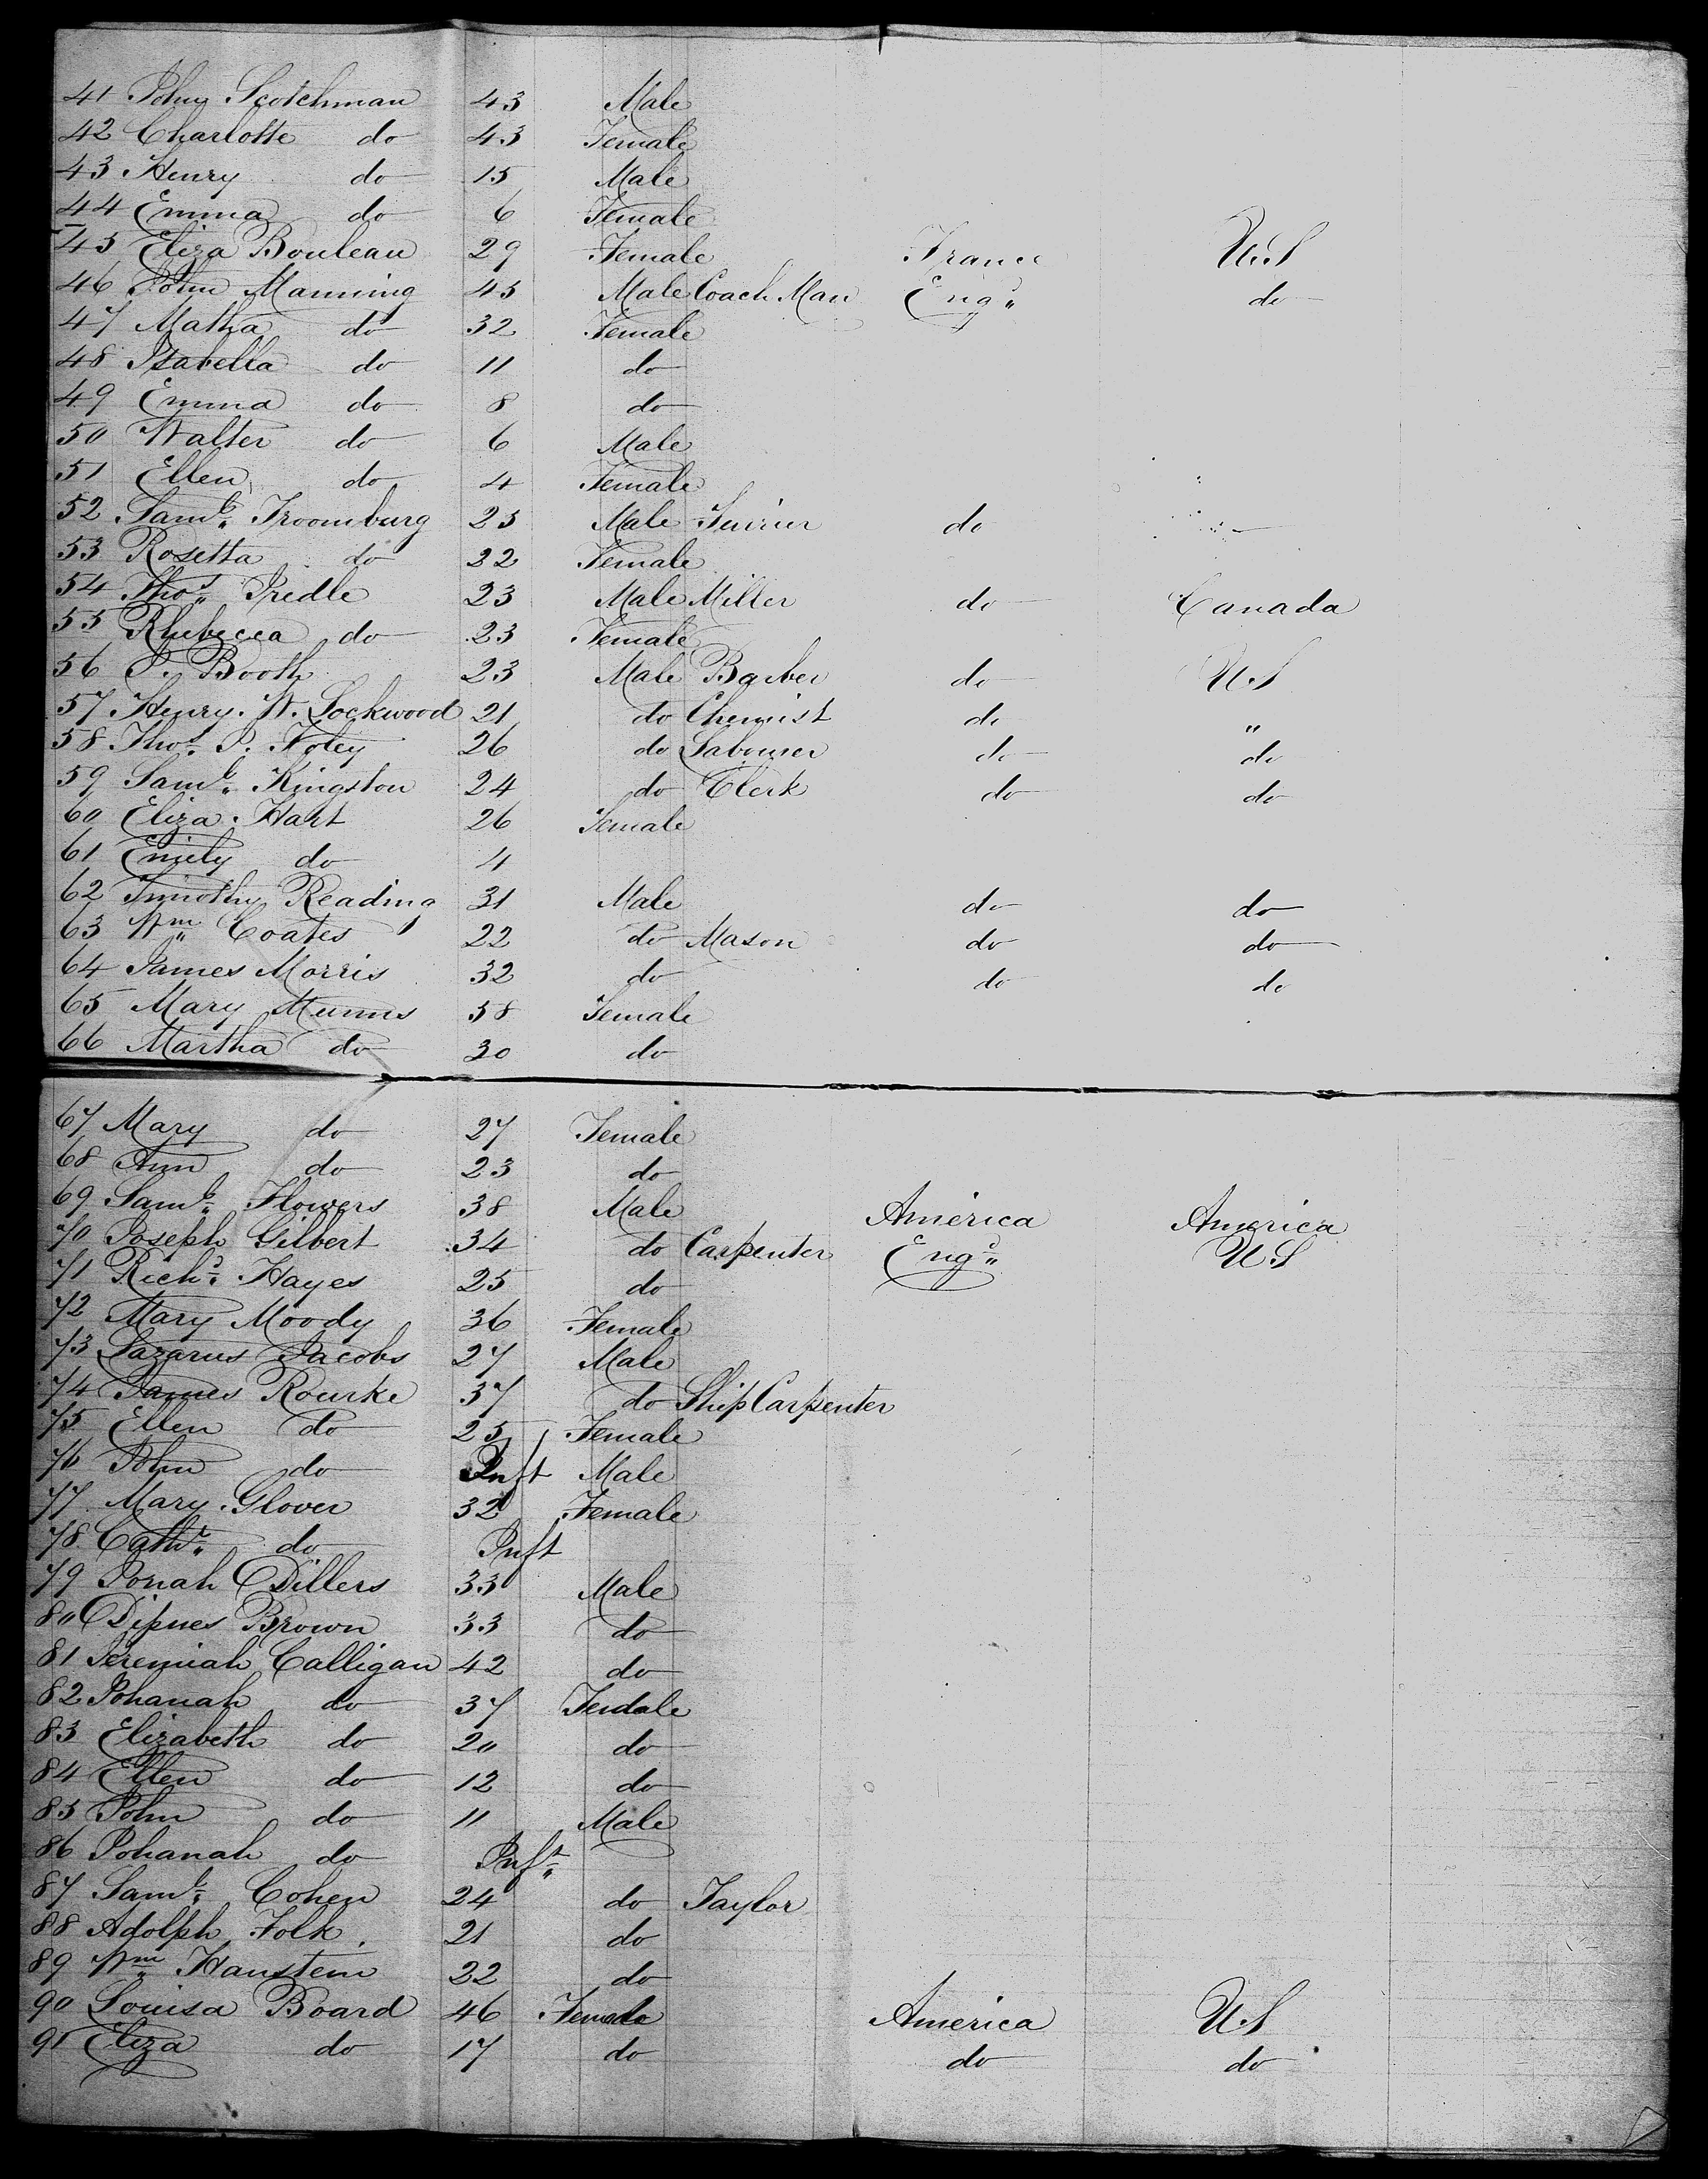 41 John Scotchman 43 Male
42 Charlotte do 43 Female
43 Henry do 15 Male
44 Emma do 6 Female
45 Eliza Bouleau 29 Female France U.S
46 John Manning 45 Male Coach Man Engd do
47 Matha do 32 Female
48 Isabella do 11 do
49 Emma do 8 do
50 Walter do 6 Male
51 Ellen do 4 Female
52 Saml Troomburg 23 Male do
53 Rosetta do 22 Female
54 Thos Predle 23 Male Miller do Canada
55 Rhebecca do 23 Female
56 P. Booth 23 Male Barber do U.S
57 Henry. W. Lockwood 21 do Chemist do "
58 Thos P. Foley 26 do Labourer do do
59 Saml Kingston 24 do Clerk do do
60 Eliza. Hart 26 Female
61 Emily do 4
62 Timothy Reading 31 Male do do
63 Wm Coates 22 do Mason do do
64 James Morris 32 do do do
65 Mary Munns 58 Female
66 Martha do 30 do
67 Mary do 27 Female
68 Ann do 23 do
69 Saml Flowers 38 Male America America
70 Joseph Gilbert 34 do Carpenter Engd U S
71 Richd Hayes 25 do
72 Mary Moody 36 Female
73 Lazarus Jacobs 27 Male
74 James Rourke 37 do Ship Carpenter
75 Ellen do 25 Female
76 John do Inft Male
77 Mary. Glover 32 Female
78 Cathr do Inft
79 Jonah Dillers 33 Male
80 Brown 33 do
81 Jeremiah Calligan 42 do
82 Johanah do 37 Female
83 Elizabeth do 20 do
84 Ellen do 12 do
85 John do 11 Male
86 Johanah do Inft
87 Saml Cohen 24 do Taylor
88 Adolph Folk 21 do
89 Wm Hanstein 22 do
90 Louisa Board 46 Female America U.S
91 Eliza do 17 do do do